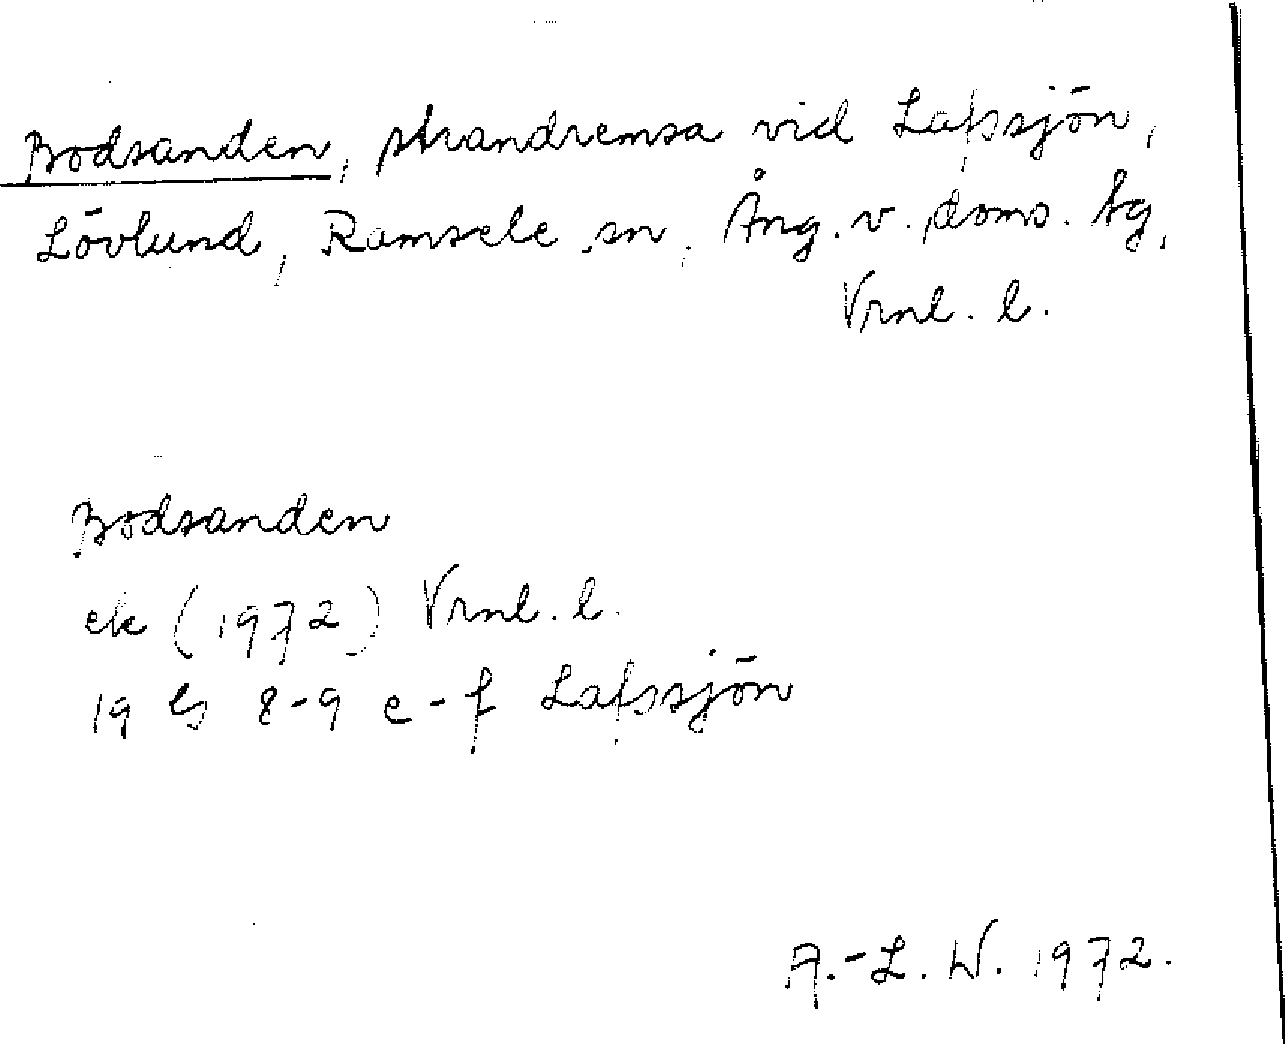 Bodsanden, strandremsa vid Lafssjön,
Lövlund, Ramsele sn, Ång. v. doms. tg,
Vrnl. l.
Bodsanden
ek (1972) Vrnl. l.
19 G 8-9 e-f Lafssjön
A.-L. W. 1972.